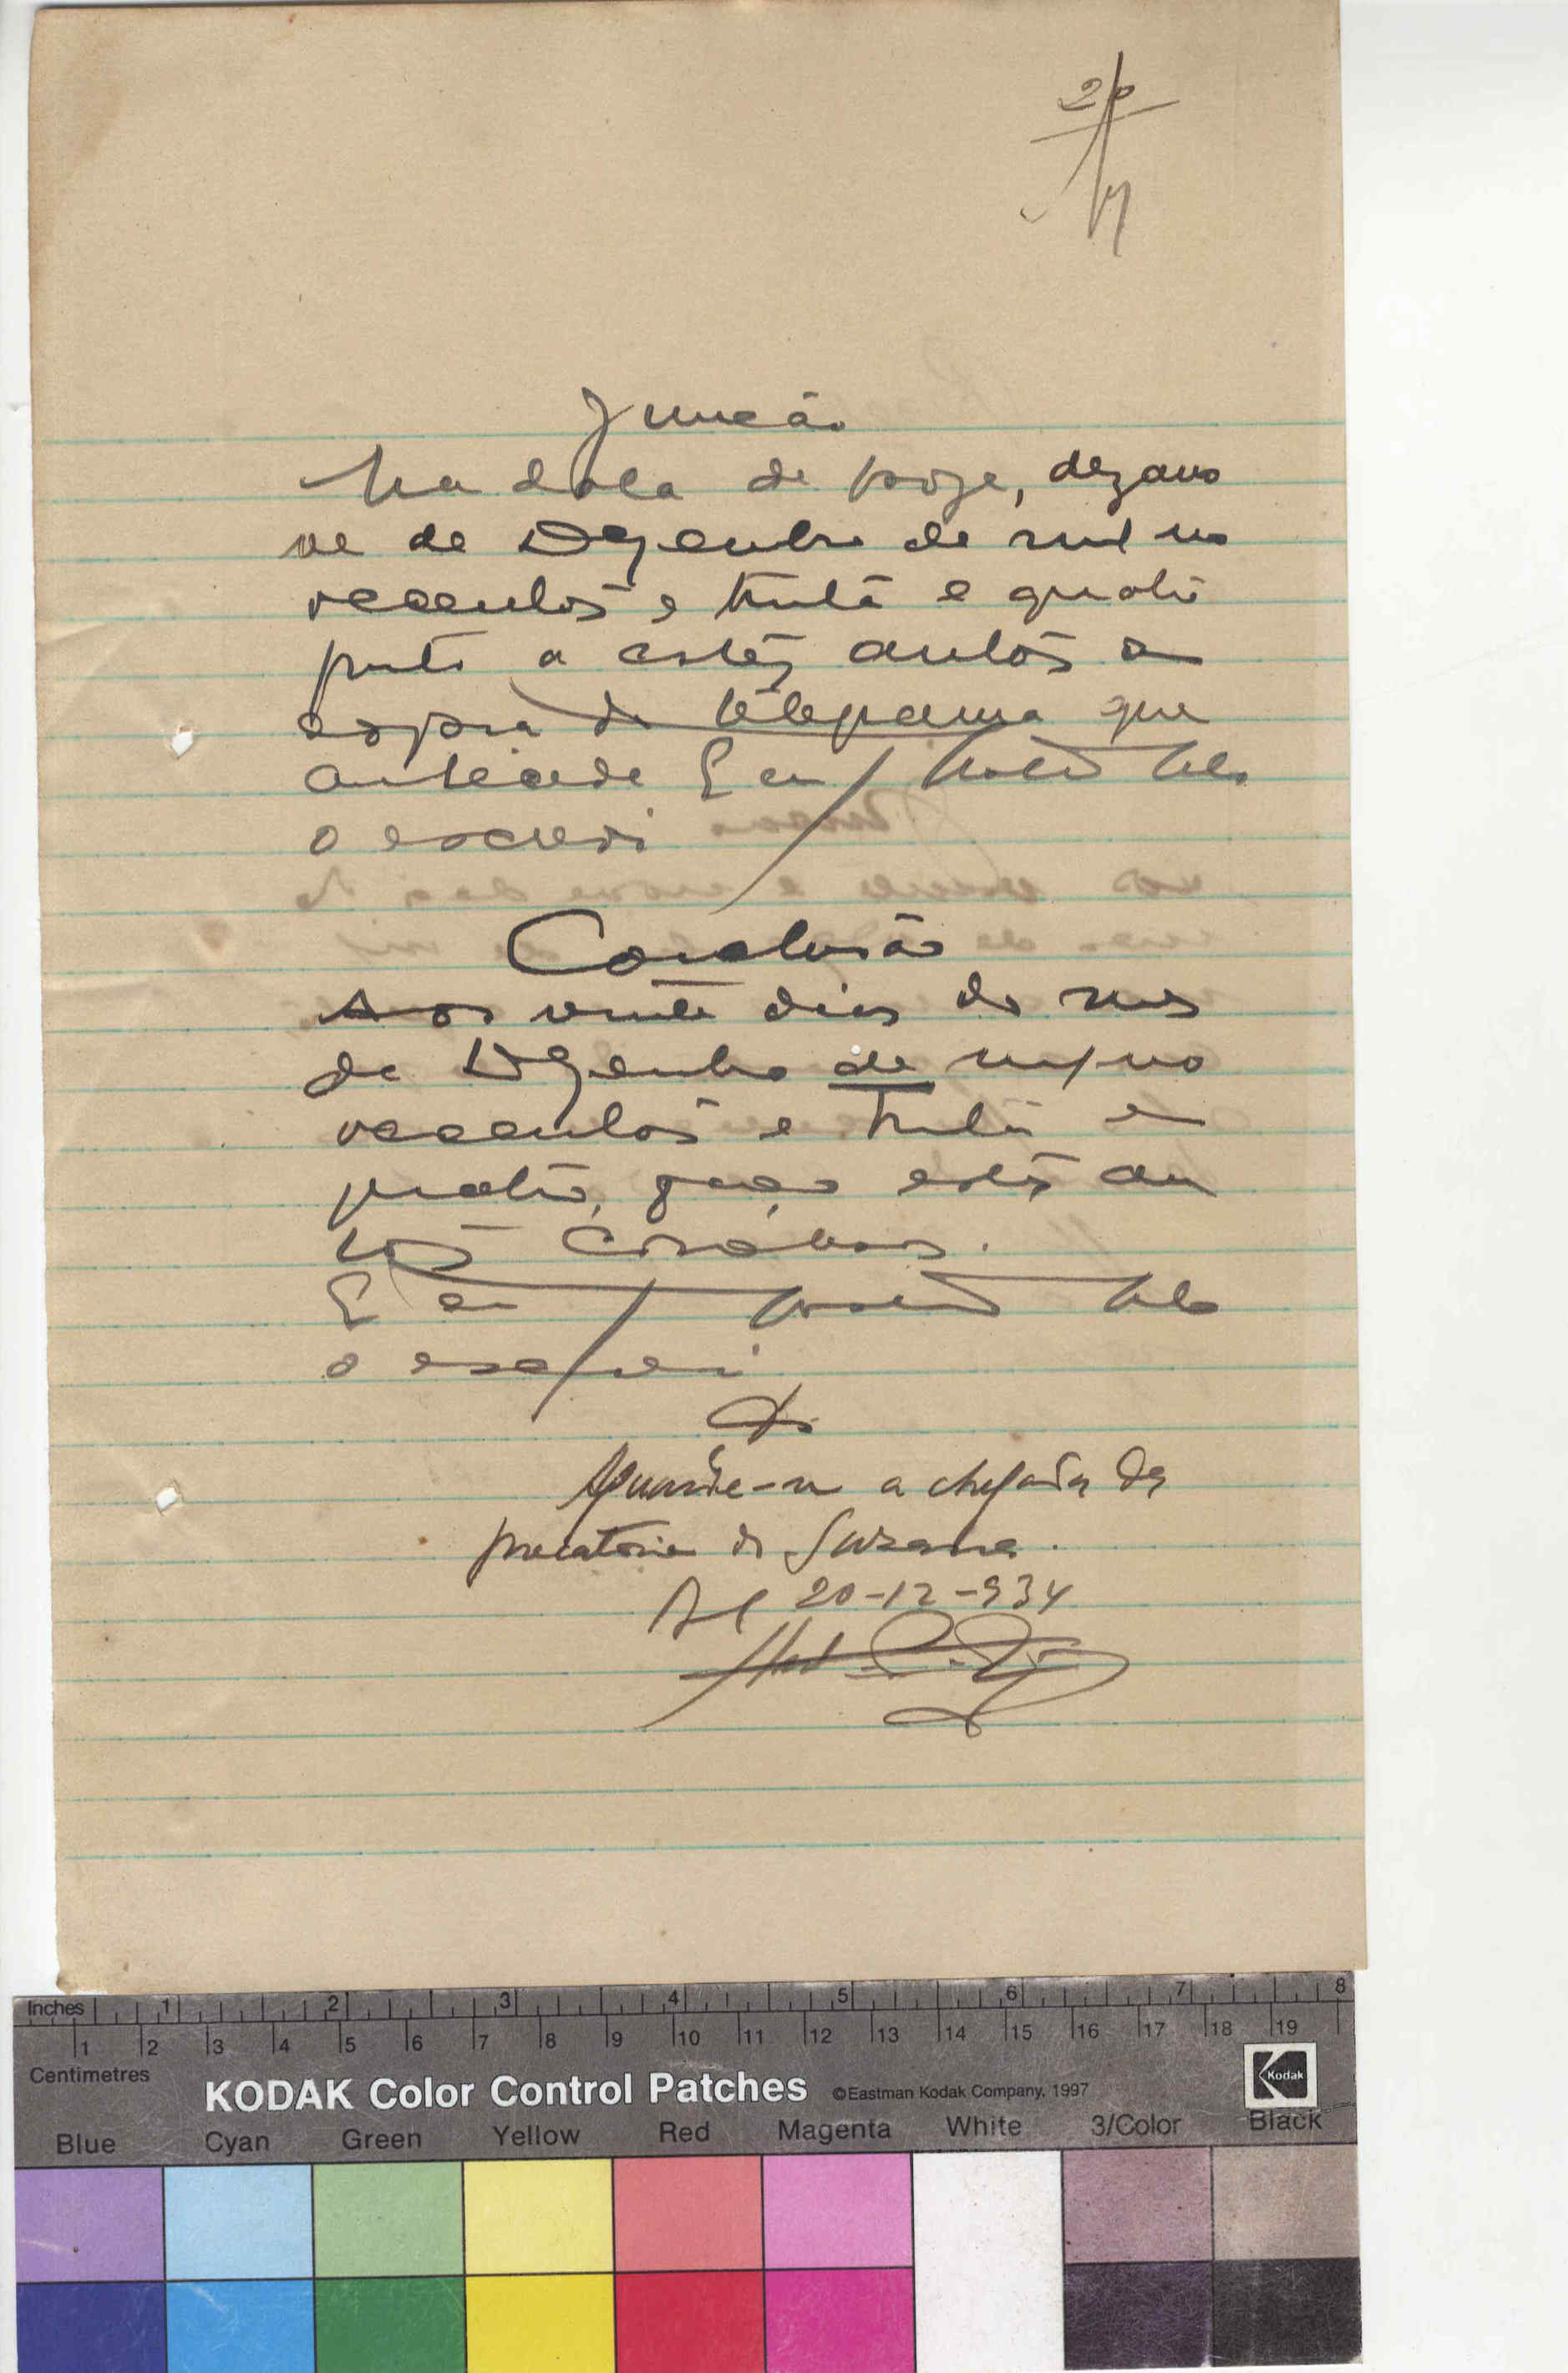 20
Juncão
Na data de hoje, dezano
ve de Dezembro de mil no
vecentos e trinta e quatro
junto a estes autos a
copia do telegrama que
antecede E eu
o escrevi
Conclusão
Aos vinte dias do mes
de Dezembro de mil no
vecentos e trinta e
quatro, faço estes au
tos conclusos.
E eu
o escrevi
Aguarde-se a chegada da
precatoria de Suzana.
20-12-934
Inches 1 2 3 4 5 6 7 8
1 2 3 4 5 6 7 8 9 10 11 12 13 14 15 16 17 18 19
Centimetres
KODAK Color Control Patches ©Eastman Kodak Company, 1997 Kodak
Blue Cyan Green Yellow Red Magenta White 3/Color Black